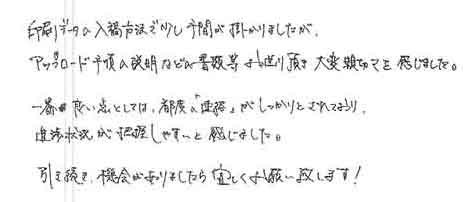 印刷データの入稿方法で少し手間が掛かりましたが、
アップロード手順の説明などの書類等お送り頂き大変親切さを感じました。
一番良い点としては、都度の連絡がしっかりとされており、
進捗状況が把握しやすいと感じました。
引き続き、機会がありましたら宜しくお願い致します！